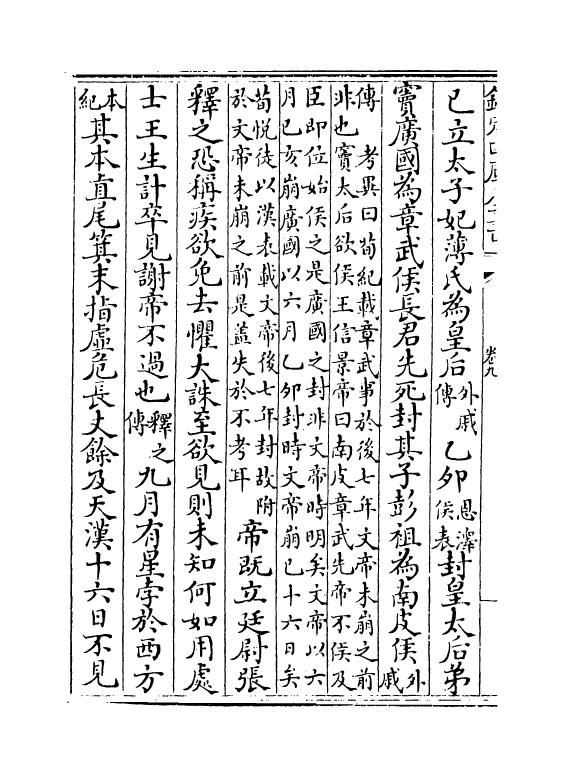 已立太子妃薄氏為皇后外戚傳乙卯恩澤侯表封皇太后弟
竇廣國為章武侯長君先死封其子彭祖為南皮侯外戚
傳　考異曰荀紀載章武事於後七年文帝未崩之前
非也竇太后欲侯王信景帝曰南皮章武先帝不侯及
臣即位始侯之是廣國之封非文帝時明矣文帝以六
月已亥崩廣國以六月乙卯封時文帝崩已十六日矣
荀悅徒以漢表載文帝後七年封故附
於文帝未崩之前是蓋失於不考耳
帝既立廷尉張
釋之恐稱疾欲免去懼大誅至欲見則未知何如用處
士王生計卒見謝帝不過也釋之傳九月有星孛於西方
本紀其本直尾箕末指虛危長丈餘及天漢十六日不見
卷九